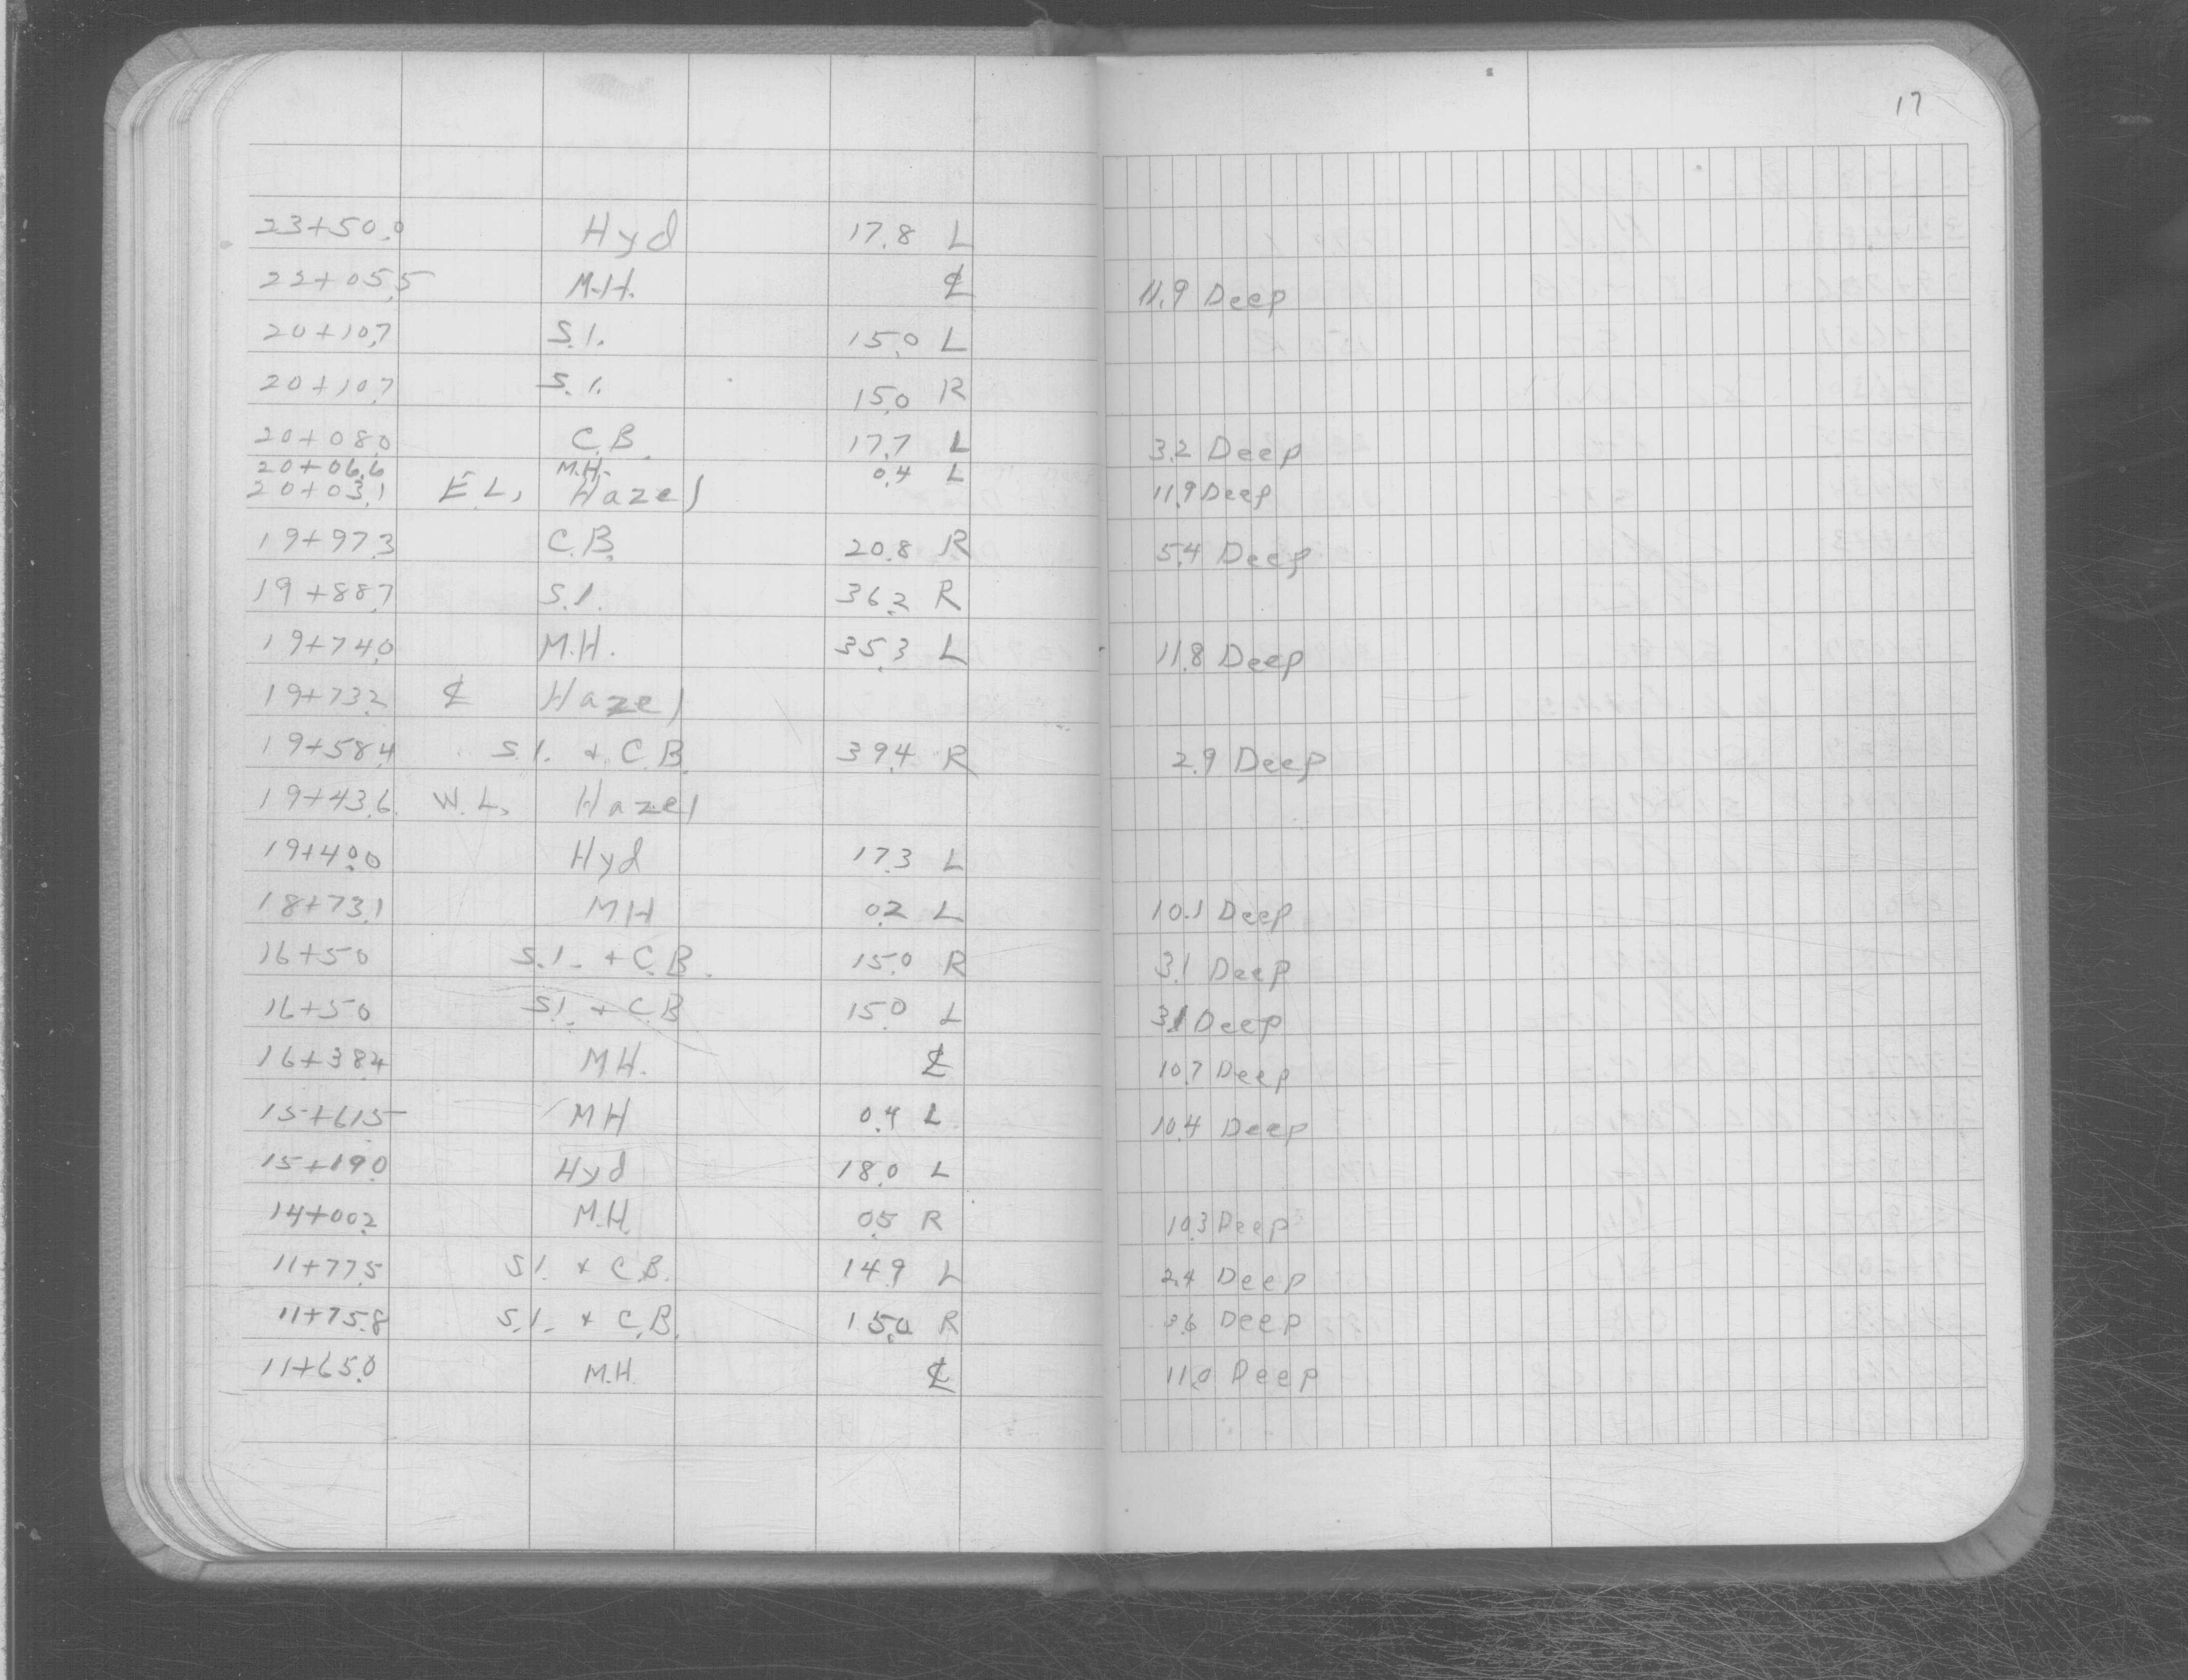 17
23+50.0 Hyd 17.8 L
22+05.5 M.H. ℄ 11.9 Deep
20+10.7 S.I. 15.0 L
20+10.7 S.I. 15.0 R
20+08.0 C.B. 17.7 L 3.2 Deep
20+06.6 M.H. 0.4 L
20+03.1 E.L. Hazel 11.9 Deep
19+97.3 C.B. 20.8 R 5.4 Deep
19+88.7 S.I. 36.2 R
19+74.0 M.H. 35.3 L 11.8 Deep
19+73.2 ℄ Hazel
19+58.4 S.I. + C.B. 39.4 R 2.9 Deep
19+43.6 W.L. Hazel
19+40.0 Hyd 17.3 L
18+73.1 MH 0.2 L 10.1 Deep
16+50 S.I. + C.B. 15.0 R 3.1 Deep
16+50 S.I. + C.B 15.0 L 3.1 Deep
16+38.4 M.H. ℄ 10.7 Deep
15+61.5 MH 0.4 L 10.4 Deep
15+19.0 Hyd 18.0 L
14+00.2 M.H. 0.5 R 10.3 Deep
11+77.5 S.I. + C.B. 14.9 L 2.4 Deep
11+75.8 S.I. + C.B. 15.0 R 3.6 Deep
11+65.0 M.H. ℄ 11.0 Deep